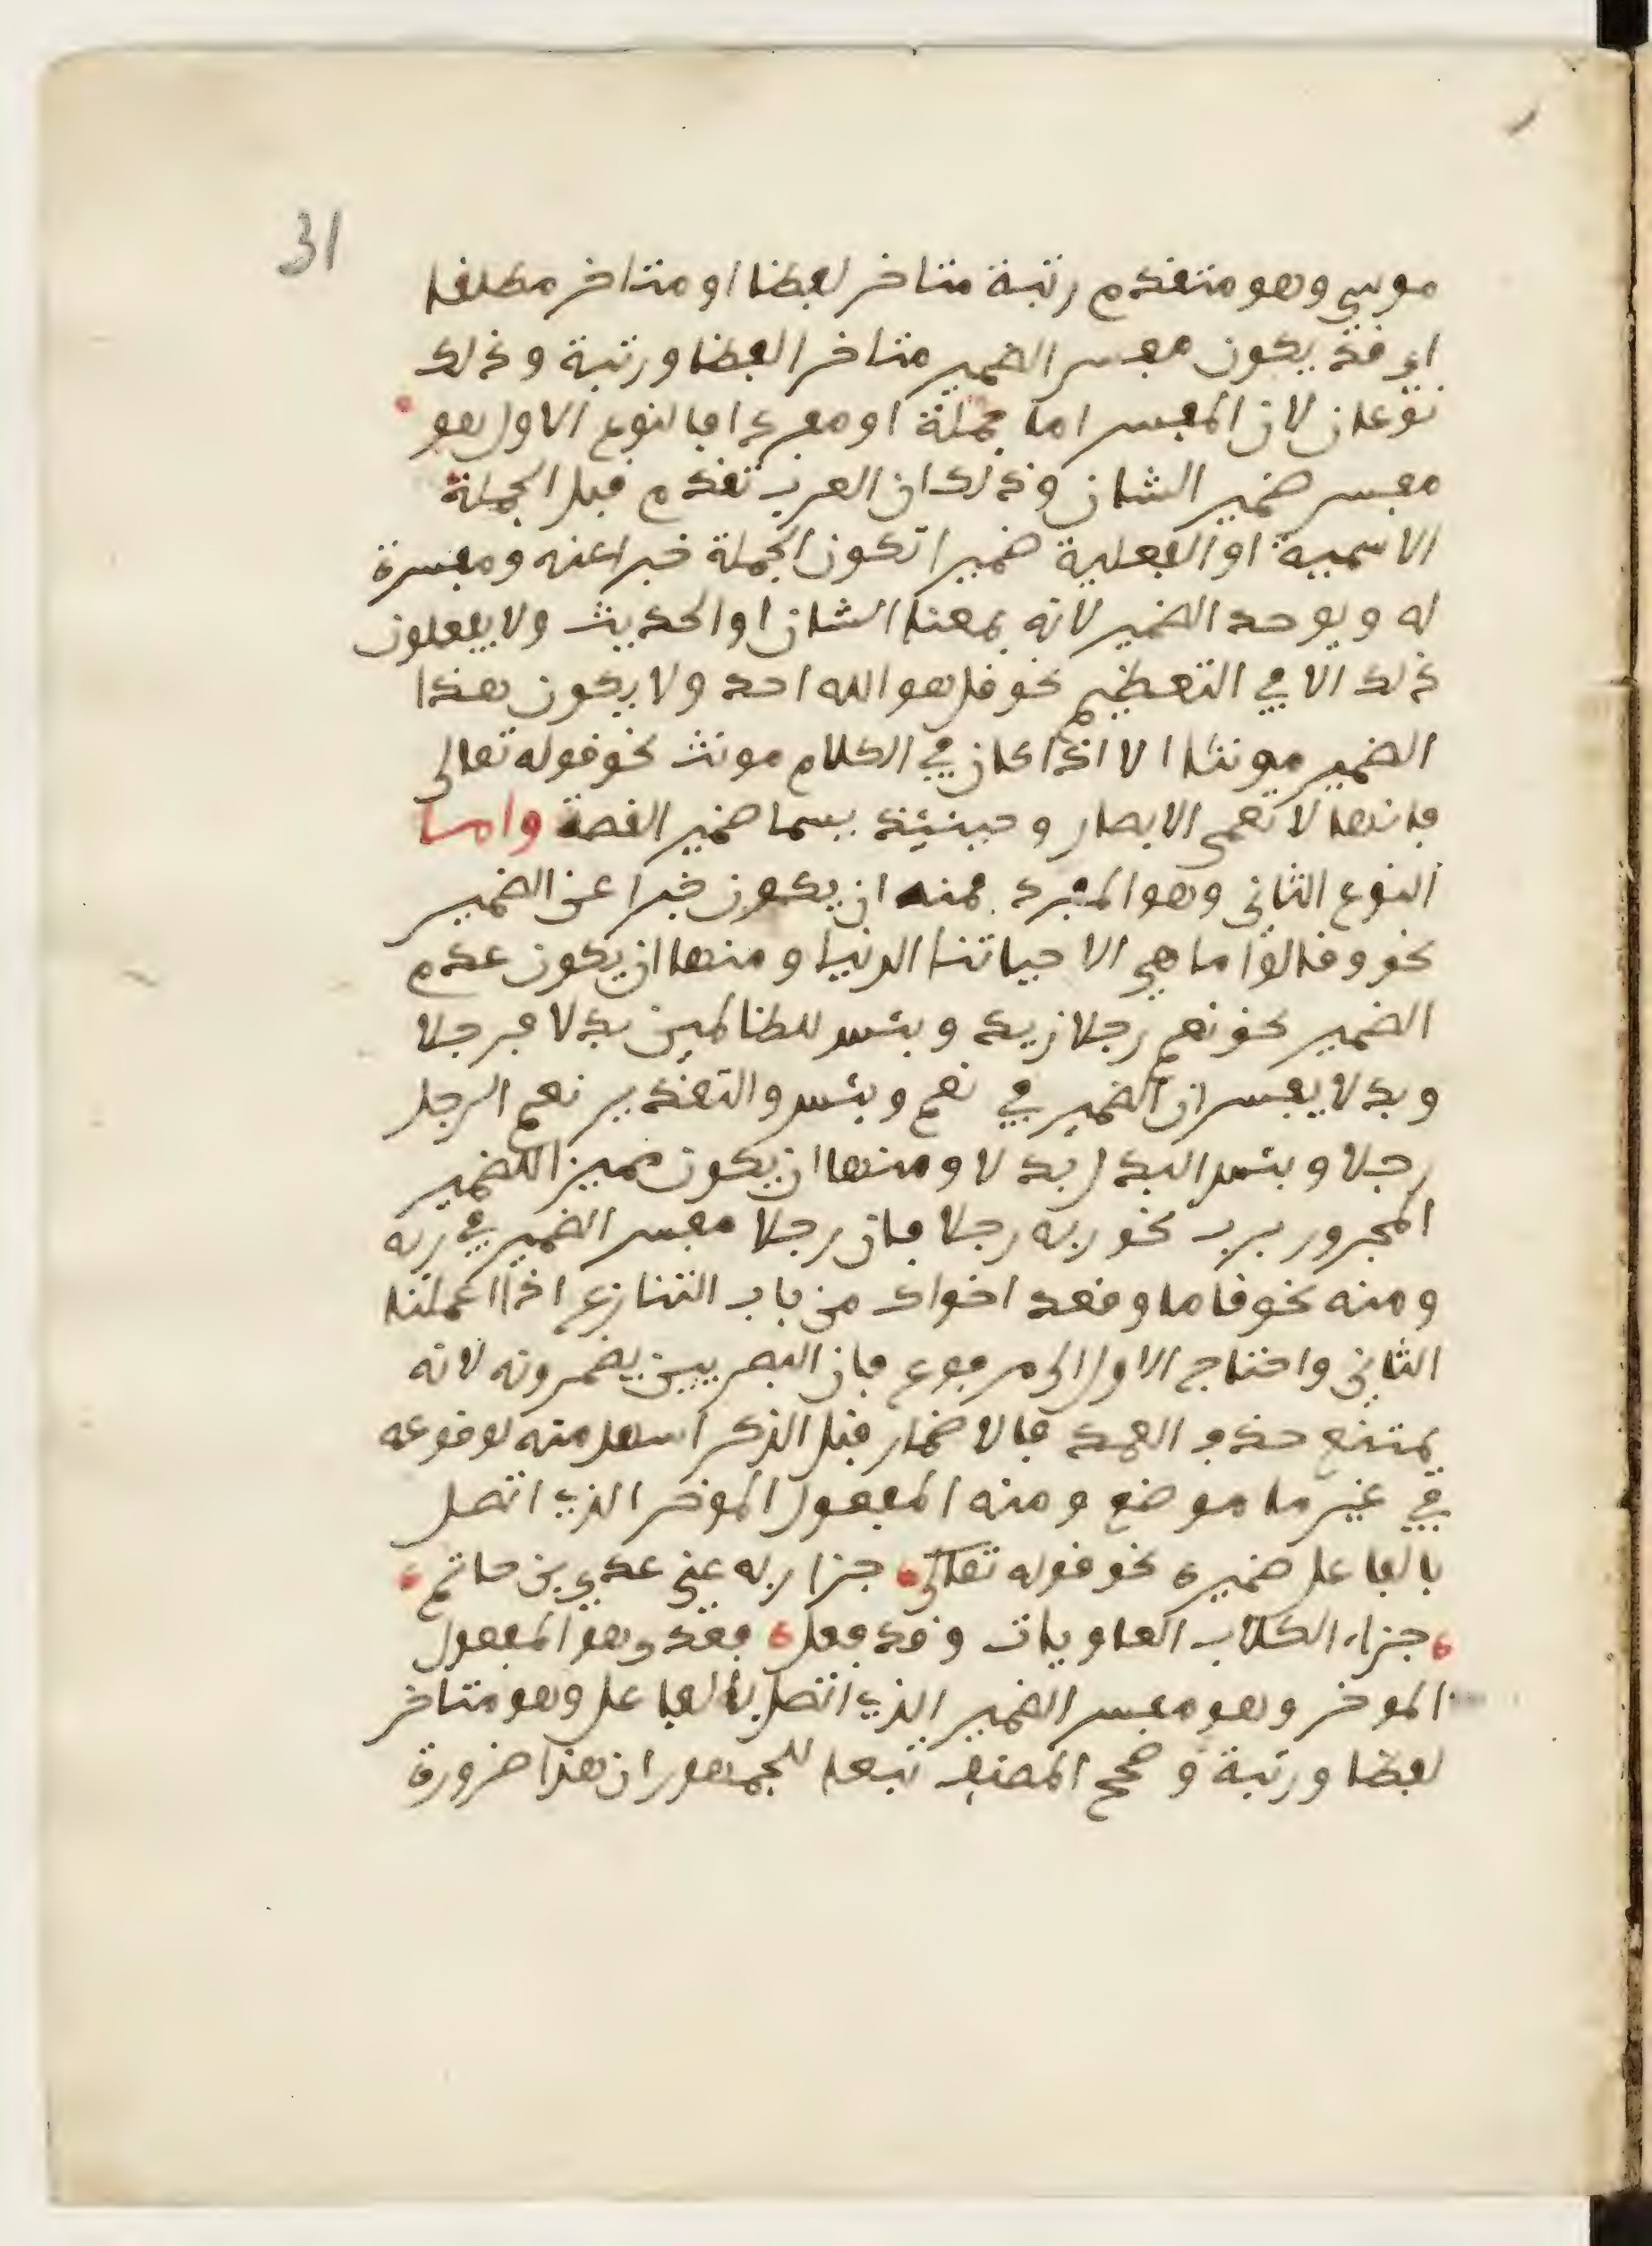 31
موسى وهو متقدم رتبة متاخر لفظا او متاخر مطلقا
اي قد يكون مفسر الضمير متاخرا لفظا ورتبة وذلك
نوعان لان المفسر اما جملة او مفردا فالنوع الاول هو
مفسر ضمير الشان وذلك ان العرب تقدم قبل الجملة
الاسمية او الفعلية ضميرا تكون الجملة خبرا عنه ومفسرة
له ويوحد الضمير لانه بمعنا الشان او الحديث ولا يفعلون
ذلك الا في التعظيم نحو قل هو الله احد ولا يكون هذا
الضمير مونثا الا اذا كان في الكلام مونث نحو قوله تعالى
فانها لا تعمى الابصار وحينئذ يسما ضمير القصة واما
النوع الثاني وهو المفرد فمنه ان يكون خبرا عن الضمير
نحو وقالوا ما هي الا حياتنا الدنيا ومنها ان يكون عدم
الضمير نحو نعم رجلا زيد وبئس للظالمين بدلا فرجلا
وبدلا يفسران الضمير في نعم وبئس والتقدير نعم الرجل
رجلا وبئس البدل بدلا ومنها ان يكون مميزا للضمير
المجرور برب نحو ربه رجلا فان رجلا مفسر الضمير في ربه
ومنه نحو قاما وقعد اخواك من باب التنازع اذا اعملنا
الثاني واحتاج الاول الى مرفوع فان البصريين يضمرونه لانه
يمتنع حذف العمد فالاضمار قبل الذكر اسهل منه لوقوعه
في غير ما موضع ومنه المفعول الموخر الذي اتصل
بالفاعل ضميره نحو قوله تعالى جزا ربه عني عدي بن حاتم
جزاء الكلاب العاويات وقد فعل فعدي هو المفعول
الموخر وهو مفسر الضمير الذي اتصل بالفاعل وهو متاخر
لفظا ورتبة وصحح المصنف تبعا للجمهور ان هذا ضرورة